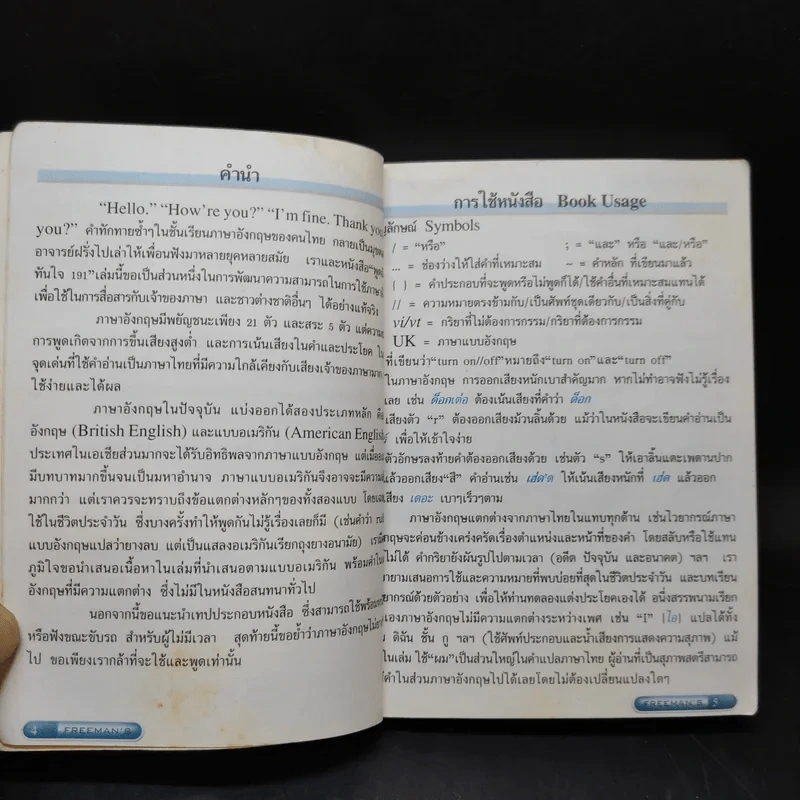 คำนำ
“Hello.” “How're you?” “I'm fine. Thank you
you?” คำทักทายซ้ำๆในชั้นเรียนภาษาอังกฤษของคนไทย กลายเป็นมุขต
อาจารย์ฝรั่งไปเล่าให้เพื่อนฟังมาหลายยุคหลายสมัย เราและหนังสือ“พูด
ทันใจ 191”เล่มนี้ขอเป็นส่วนหนึ่งในการพัฒนาความสามารถในการใช้ภาษา
เพื่อใช้ในการสื่อสารกับเจ้าของภาษา และชาวต่างชาติอื่นๆ ได้อย่างแท้จริง
ภาษาอังกฤษมีพยัญชนะเพียง 21 ตัว และสระ 5 ตัว แต่ความ
การพูดเกิดจากการขึ้นเสียงสูงต่ำ และการเน้นเสียงในคำและประโยค ใน
จุดเด่นที่ใช้คำอ่านเป็นภาษาไทยที่มีความใกล้เคียงกับเสียงเจ้าของภาษามาก
ใช้ง่ายและได้ผล
ภาษาอังกฤษในปัจจุบัน แบ่งออกได้สองประเภทหลัก คือ
อังกฤษ (British English) และแบบอเมริกัน (American English
ประเทศในเอเชียส่วนมากจะได้รับอิทธิพลจากภาษาแบบอังกฤษ แต่เมื่อ
มีบทบาทมากขึ้นจนเป็นมหาอำนาจ ภาษาแบบอเมริกันจึงอาจจะมีความ
มากกว่า แต่เราควรจะทราบถึงข้อแตกต่างหลักๆของทั้งสองแบบ โดย
ใช้ในชีวิตประจำวัน ซึ่งบางครั้งทำให้พูดกันไม่รู้เรื่องเลยก็มี (เช่นคำว่า
แบบอังกฤษแปลว่ายางลบ แต่เป็นแสลงอเมริกันเรียกถุงยางอนามัย) เรา
ภูมิใจขอนำเสนอเนื้อหาในเล่มที่นำเสนอตามแบบอเมริกัน พร้อมคำใน
อังกฤษที่มีความแตกต่าง ซึ่งไม่มีในหนังสือสนทนาทั่วไป
นอกจากนี้ขอแนะนำเทปประกอบหนังสือ ซึ่งสามารถใช้พร้อม
หรือฟังขณะขับรถ สำหรับผู้ไม่มีเวลา สุดท้ายนี้ขอย้ำว่าภาษาอังกฤษไม่
ไป ขอเพียงเรากล้าที่จะใช้และพูดเท่านั้น
4 FREEMAN'S
การใช้หนังสือ Book Usage
ลักษณ์ Symbols
/ = “หรือ” ; = “และ” หรือ “และ/หรือ”
... = ช่องว่างให้ใส่คำที่เหมาะสม ~ = คำหลัก ที่เขียนมาแล้ว
( ) = คำประกอบที่จะพูดหรือไม่พูดก็ได้/ใช้คำอื่นที่เหมาะสมแทนได้
// = ความหมายตรงข้ามกัน/เป็นศัพท์ชุดเดียวกัน/เป็นสิ่งที่คู่กัน
vi/vt = กริยาที่ไม่ต้องการกรรม/กริยาที่ต้องการกรรม
UK = ภาษาแบบอังกฤษ
ที่เขียนว่า“turn on//off”หมายถึง“turn on”และ“turn off”
ในภาษาอังกฤษ การออกเสียงหนักเบาสำคัญมาก หากไม่ทำอาจฟังไม่รู้เรื่อง
เลย เช่น ด็อกเด้อ ต้องเน้นเสียงที่คำว่า ด็อก
เสียงตัว “r” ต้องออกเสียงม้วนลิ้นด้วย แม้ว่าในหนังสือจะเขียนคำอ่านเป็น
ร์ เพื่อให้เข้าใจง่าย
ตัวอักษรลงท้ายคำต้องออกเสียงด้วย เช่นตัว “s” ให้เอาลิ้นแตะเพดานปาก
แล้วออกเสียง“สี” คำอ่านเช่น เฮ่ด'ด ให้เน้นเสียงหนักที่ เฮ่ด แล้วออก
เสียง เดอะ เบาๆเร็วๆตาม
ภาษาอังกฤษแตกต่างจากภาษาไทยในแทบทุกด้าน เช่นไวยากรณ์ภาษา
กฤษจะค่อนข้างเคร่งครัดเรื่องตำแหน่งและหน้าที่ของคำ โดยสลับหรือใช้แทน
ไม่ได้ คำกริยายังผันรูปไปตามเวลา (อดีต ปัจจุบัน และอนาคต) ฯลฯ เรา
ยามเสนอการใช้และความหมายที่พบบ่อยที่สุดในชีวิตประจำวัน และบทเรียน
ยากรณ์ด้วยตัวอย่าง เพื่อให้ท่านทดลองแต่งประโยคเองได้ อนึ่งสรรพนามเรียก
เองภาษาอังกฤษไม่มีความแตกต่างระหว่างเพศ เช่น “I” (ไอ) แปลได้ทั้ง
ม ดิฉัน ชั้น กู ฯลฯ (ใช้ศัพท์ประกอบและน้ำเสียงการแสดงความสุภาพ) แม้
ในเล่ม ใช้“ผม”เป็นส่วนใหญ่ในคำแปลภาษาไทย ผู้อ่านที่เป็นสุภาพสตรีสามารถ
คำในส่วนภาษาอังกฤษไปได้เลยโดยไม่ต้องเปลี่ยนแปลงใดๆ
FREEMAN'S 5